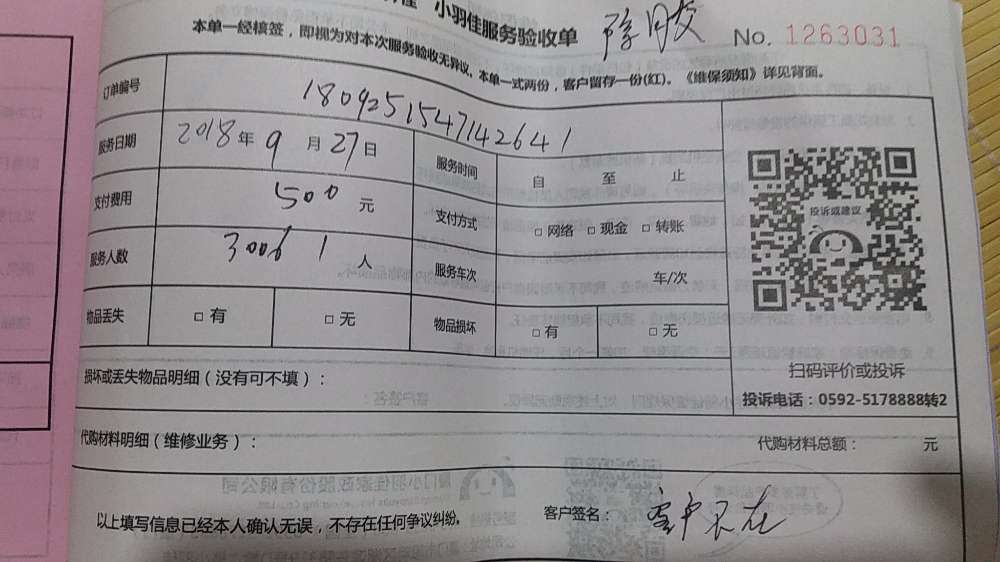 小羽佳服务验收单
No. 1263031
本单一经核签，即视为对本次服务验收无异议。本单一式两份，客户留存一份(红)。《维保须知》详见背面。
订单编号 180925154714264 1
服务日期 2018 年 9 月 27 日 服务时间 自 至 止
支付费用 500 元 支付方式 □ 网络 □ 现金 □ 转账
服务人数 3006 1 人 服务车次 车/次
物品丢失 □ 有 □ 无 物品损坏 □ 有 □ 无
投诉或建议
扫码评价或投诉
投诉电话：0592-5178888转2
损坏或丢失物品明细（没有可不填）：
代购材料明细（维修业务）： 代购材料总额： 元
以上填写信息已经本人确认无误，不存在任何争议纠纷。 客户签名： 客户不在